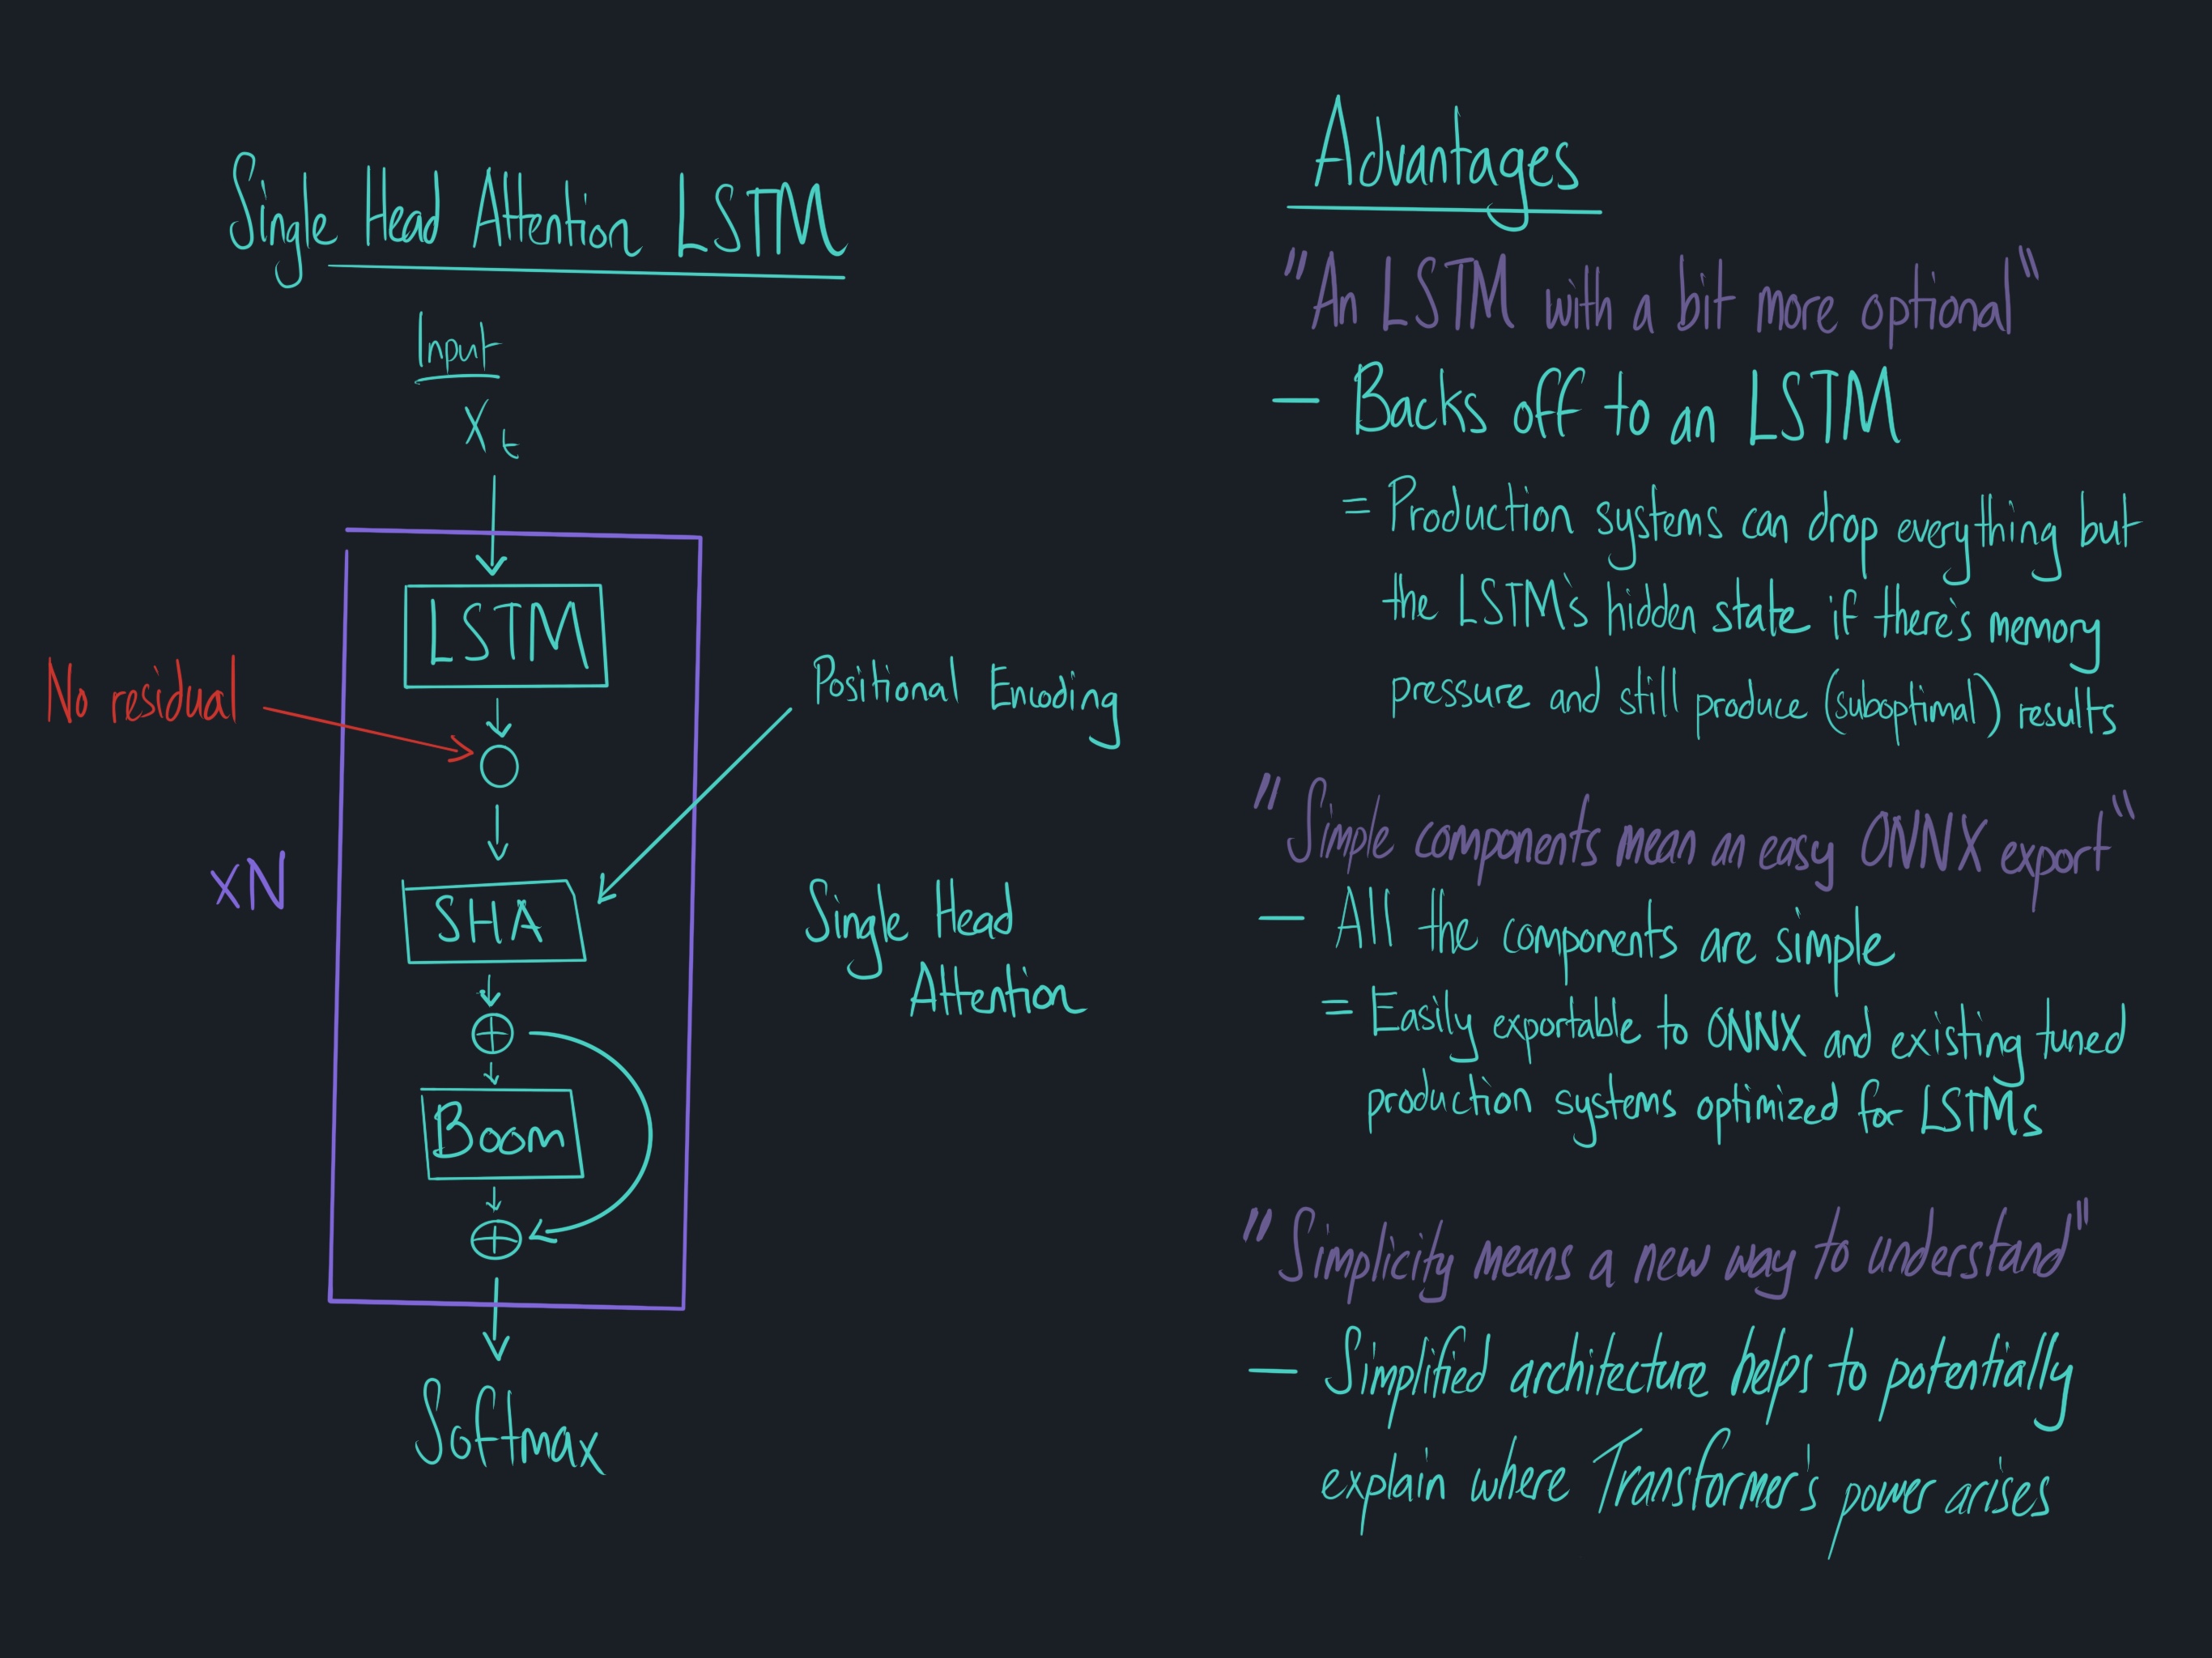 Single Head Attention LSTM
Input
Xt
LSTM
No residual
Positional Encoding
xN
SHA
Single Head
Attention
Boom
Softmax
Advantages
"An LSTM with a bit more optional"
— Backs off to an LSTM
= Production systems can drop everything but
the LSTM's hidden state if there's memory
pressure and still produce (suboptimal) results
"Simple components mean an easy ONNX export"
— All the components are simple
= Easily exportable to ONNX and existing tuned
production systems optimized for LSTMs
"Simplicity means a new way to understand"
— Simplified architecture helps to potentially
explain where Transformer's power arises